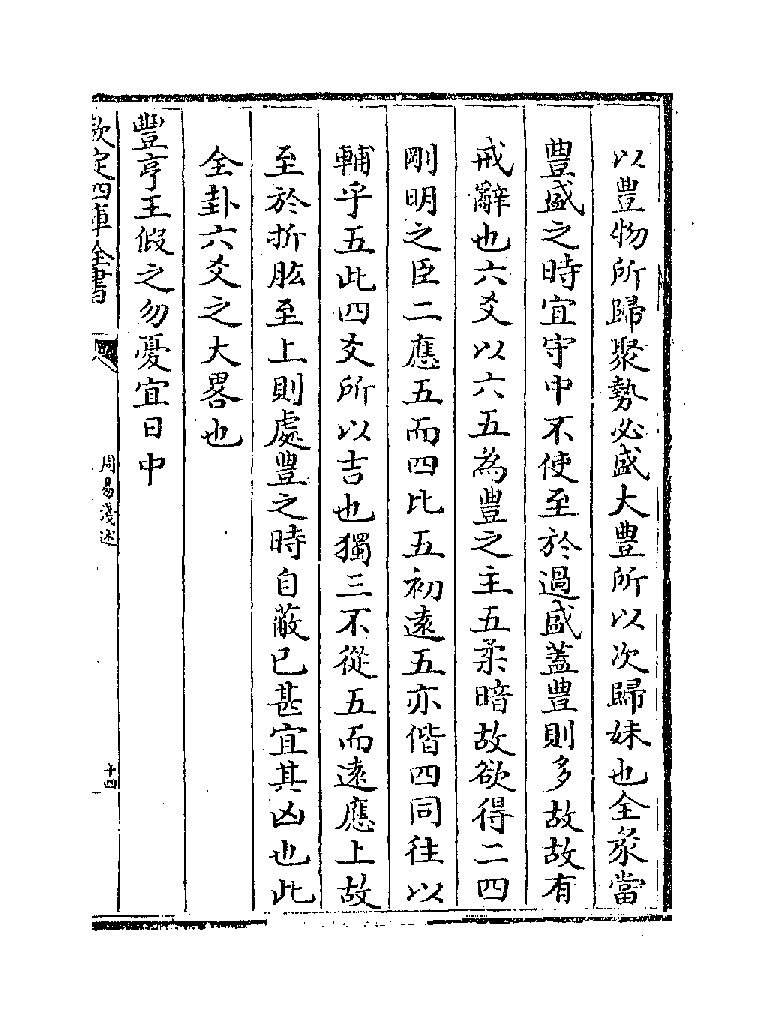 以豊物所歸聚勢必盛大豊所以次歸妹也全彖當
豊盛之時宜守中不使至於過盛蓋豊則多故故有
戒辭也六爻以六五為豊之主五柔暗故欲得二四
剛明之臣二應五而四比五初遠五亦偕四同往以
輔乎五此四爻所以吉也獨三不從五而遠應上故
至於折肱至上則處豊之時自蔽已甚宜其凶也此
全卦六爻之大畧也
豐亨王假之勿憂宜日中
欽定四庫全書
周易淺述
十四